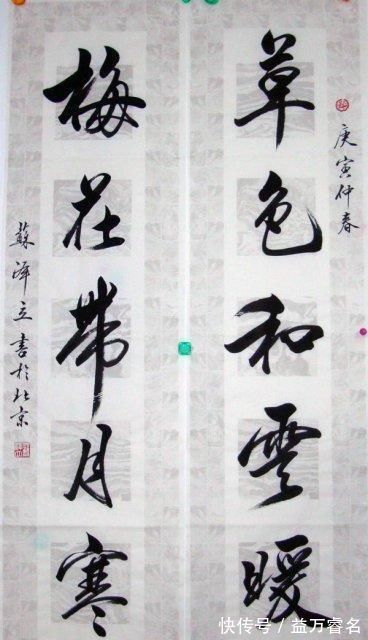 庚寅仲春
草色和雲暖
梅花帶月寒
蘇澤立書於北京
快传号 / 益万睿名